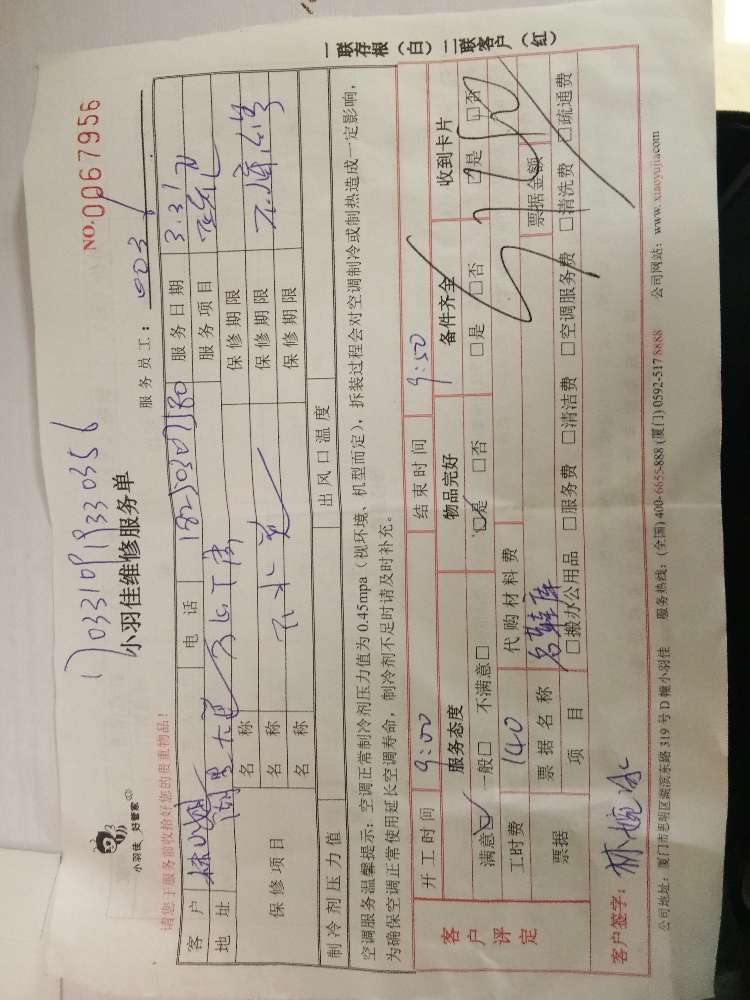 一联存根（白）二联客户（红）
NO.0067956
17033109193303​56
小羽佳维修服务单
小羽佳 好管家
服务员工：003
请您于服务前收拾好您的贵重物品！
客户 电话 18250307180 服务日期 3.31
地址 服务项目
保修项目 名称 保修期限
名称 保修期限
名称 保修期限
制冷剂压力值 出风口温度
空调服务温馨提示：空调正常制冷剂压力值为0.45mpa（视环境、机型而定），拆装过程会对空调制冷或制热造成一定影响，
为确保空调正常使用延长空调寿命，制冷剂不足时请及时补充。
客户评定 开工时间 9:00 结束时间 9:50
服务态度 物品完好 备件齐全 收到卡片
满意☑ 一般□ 不满意□ ☑是 □否 □是 □否 □是 □否
工时费 140 代购材料费
票据 票据名称 名鞋库 票据金额
项目 □搬办公用品 □服务费 □清洁费 □空调服务费 □清洗费 □疏通费
客户签字：林婉冰
公司地址：厦门市思明区湖滨东路319号D幢小羽佳 服务热线：(全国)400-6655-888 (厦门)0592-517 8888 公司网站：www.xiaoyujia.com